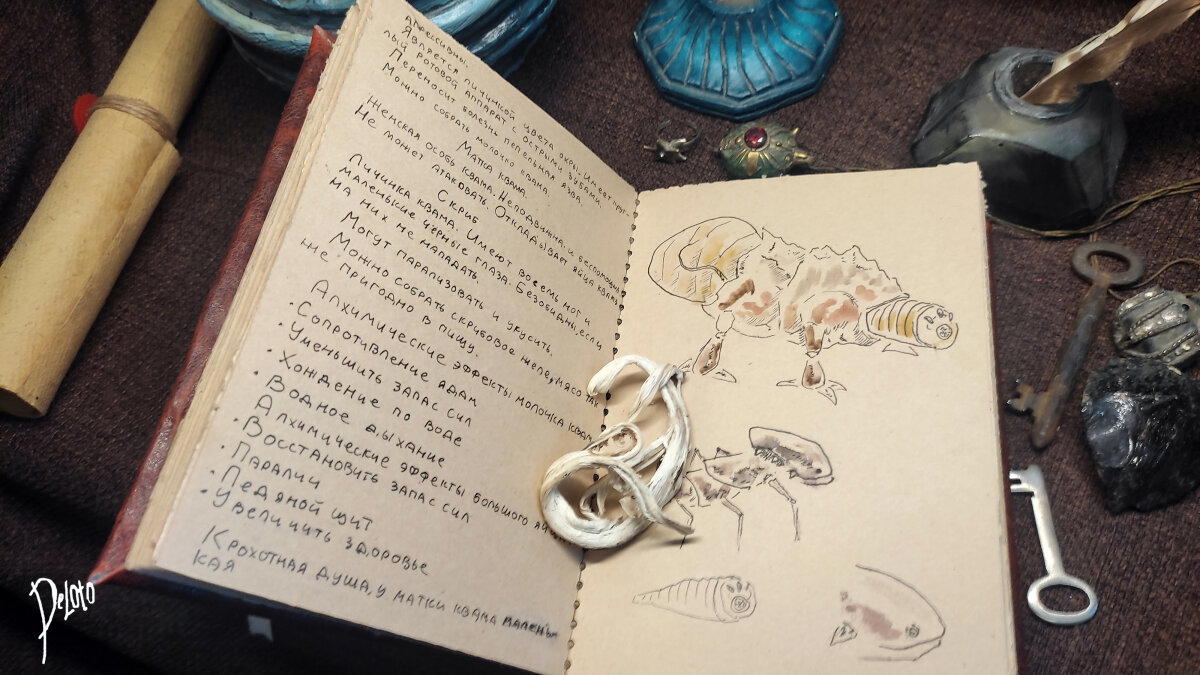 агрессивны.
Является личинкой цвета охры. Имеет круг-
лый ротовой аппарат с острыми зубами.
Переносит болезнь пепельная язва
Можно собрать молочко квама.
Матка квама.
Женская особь квама. Неподвижна и беспомощна
Не может атаковать. Откладывает яйца квама
Скриб
Личинка квама. Имеют восемь ног и
маленькие чёрные глаза. Безобидны, если
на них не нападать.
Могут парализовать и укусить.
Можно собрать скрибовое желе, мясо так
же пригодно в пищу.
Алхимические эффекты молочка квама
· Сопротивление ядам
· Уменьшить запас сил
· Хождение по воде
· Водное дыхание
Алхимические эффекты большого яйца
· Восстановить запас сил
· Паралич
· Ледяной щит
· Увеличить здоровье
Крохотная душа, у матки квама малень
кая
DeLoto